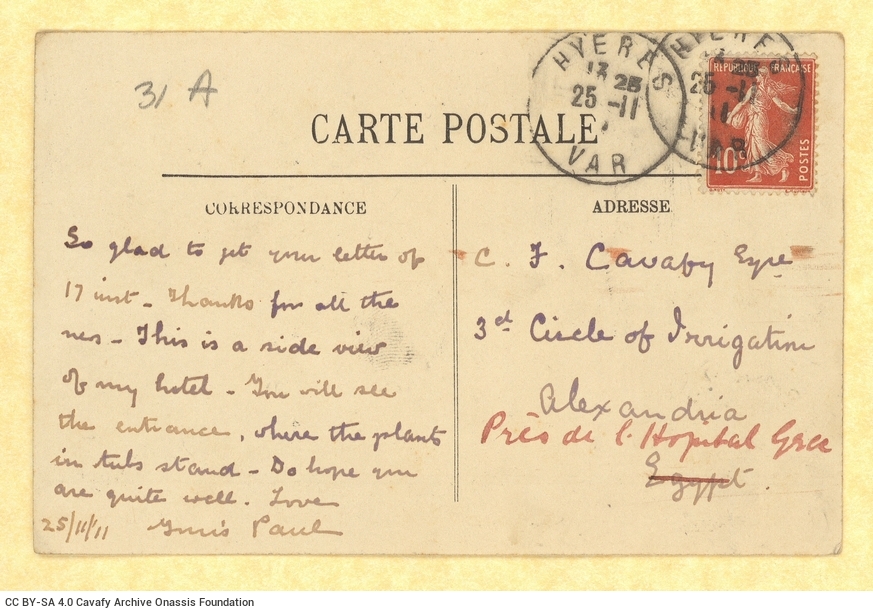 31 A
HYERES
13
25
25 -11
VAR
HYERES
25 -11
VAR
REPUBLIQUE FRANCAISE
10c
POSTES
CARTE POSTALE
CORRESPONDANCE
So glad to get your letter of
17 inst - Thanks for all the
nes - This is a side view
of my hotel - You will see
the entrance, where the plants
in tubs stand - Do hope you
are quite well. Love
25/11/11 Yours Paul
ADRESSE
C. F. Cavafy Esqre
3rd Circle of Irrigation
Alexandria
Près de l'Hopital Grec
Egypt.
CC BY-SA 4.0 Cavafy Archive Onassis Foundation